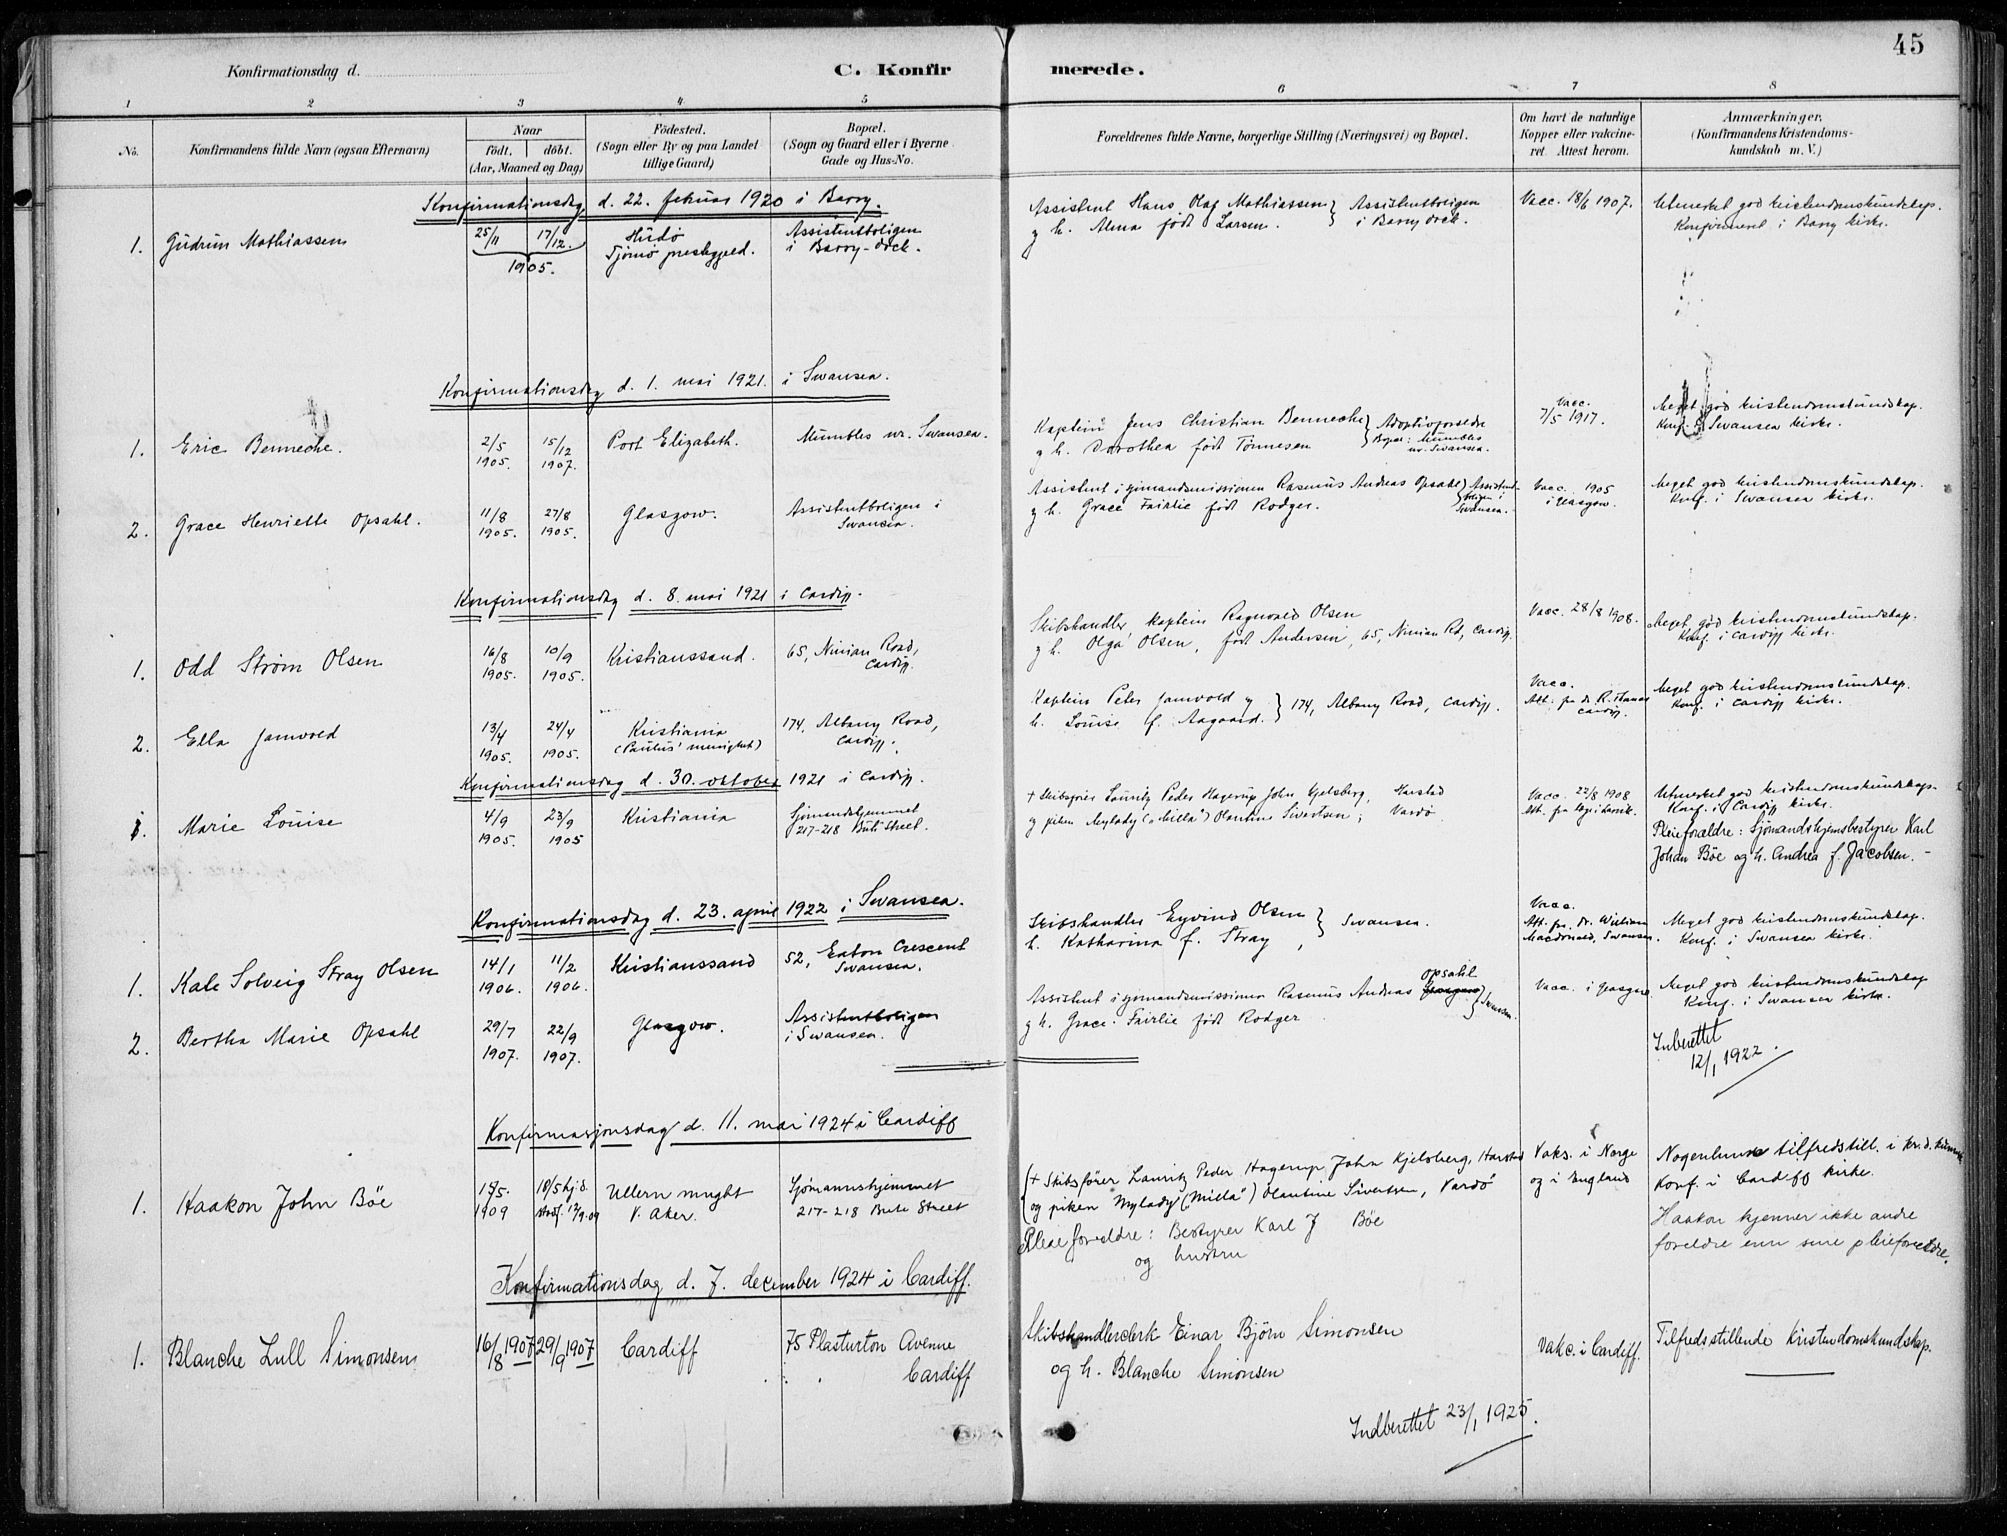 45
Konfirmationsdag d.
C. Konfirmerede.
1 2 3 4 5 6 7 8
No.
Konfirmandens fulde Navn (ogsaa Efternavn)
Naar
født. døbt.
(Aar, Maaned og Dag)
Fødested.
(Sogn eller By og paa Landet
tillige Gaard)
Bopæl.
(Sogn og Gaard eller i Byerne
Gade og Hus-No.
Forældrenes fulde Navne, borgerlige Stilling (Næringsvei) og Bopæl.
Om havt de naturlige
Kopper eller vakcine-
ret. Attest herom.
Anmærkninger.
(Konfirmandens Kristendoms-
kundskab m. V.)
Konfirmationsdag d. 22. februar 1920 i Barry.
1. Gudrun Mathiassen
25/11 17/12
1905.
Hudø
Tjømø prestegjeld.
Assistentboligen
i Barry-dock.
Assistent Hans Olaf Mathiassen
og h. Alma født Larsen.
Assistentboligen
i Barry dock.
Vacc. 18/6 1907.
Utmerket god kristendomskundskap.
Konfirmeret i Barry kirke.
Konfirmationsdag d. 1. mai 1921. i Swansea.
1. Eric Benneche.
2/5 15/12
1905. 1907.
Port Elizabeth.
Mumbles nr. Swansea.
Kaptein Jens Christian Benneche
og h. Dorothea født Tønnesen
Adoptivforeldre
Bopæl: Mumbles
nr. Swansea.
Vacc.
7/5 1917.
Meget god kristendomskundskap.
Konf. i Swansea kirke.
2. Grace Henriette Opsahl.
11/8 27/8
1905. 1905.
Glasgow.
Assistentboligen i
Swansea.
Assistent i sjømandsmissionen Rasmus Andreas Opsahl
og h. Grace Fairlie født Rodger.
Assistent-
boligen i
Swansea.
Vacc. 1905
i Glasgow.
Meget god kristendomskundskap.
Konf. i Swansea kirke.
Konfirmationsdag d. 8. mai 1921 i Cardiff.
1. Odd Strøm Olsen
16/8 10/9
1905. 1905.
Kristianssand.
65, Ninian Road,
Cardiff.
Skibshandler kaptein Ragnvald Olsen
og h. Olga Olsen, født Andersen, 65, Ninian Rd, Cardiff.
Vacc. 28/8 1908.
Meget god kristendomskundskap.
Konf. i Cardiff kirke.
2. Ella Jamvold
13/4 24/4
1905. 1905.
Kristiania
(Paulus' menighet)
174, Albany Road,
Cardiff.
Kaptein Peter Jamvold og
h. Louise f. Aagaard.
174, Albany Road, Cardiff.
Vacc.
Att. fra dr. R. Thomas
Cardiff.
Meget god kristendomskundskap.
Konf. i Cardiff kirke.
Konfirmationsdag d. 30. oktober 1921 i Cardiff.
1. Marie Louise
4/9 23/9
1905. 1905
Kristiania
Sjømandshjemmet
217-218 Bute Street.
+ Skibsfører Lauritz Peder Hagerup John Kjelsberg, Harstad
og piken Mylady ("Milla") Olantine Sivertsen, Vardø
Vacc. 22/8 1908
Att. fra
Utmerket god kristendomskundskap.
Konf. i Cardiff kirke.
Pleieforældre: Sjømandshjemsbestyrer Karl
Johan Bøe og h. Andrea f. Jacobsen. -
Konfirmationsdag d. 23. april 1922 i Swansea.
1. Kale Solveig Stray Olsen
14/1 11/2
1906. 1906.
Kristianssand
52, Eaton Crescent
Swansea.
Skibshandler Eyvind Olsen
h. Katharina f. Stray,
Swansea.
Vacc.
Att. fra Dr. William
Macdonald, Swansea.
Meget god kristendomskundskap.
Konf. i Swansea kirke.
2. Bertha Marie Opsahl
29/7 22/9
1907. 1907.
Glasgow.
Assistentboligen
i Swansea.
Assistent i sjømandsmissionen Rasmus Andreas Opsahl
og h. Grace Fairlie født Rodger
Swansea.
Vacc. i Glasgow.
Meget god kristendomskundskap
Konf. i Swansea kirke.
Inberettet
12/1 1922.
Konfirmasjonsdag d. 11. mai 1924 i Cardiff
1. Haakon John Bøe
1909
Ullern mnght
V. Aker.
Sjømannshjemmet
217-218 Bute Street
+ Skibsfører Lauritz Peder Hagerup John Kjelsberg, Harstad
og piken Mylady ("Milla") Olantine Sivertsen, Vardø
Pleieforeldre: Bestyrer Karl J Bøe
og hustru
Vaks. i Norge
og i England
Nogenlunde tilfredstill. i kr.d.kunnsk
Konf. i Cardiff kirke.
Haakon kjenner ikke andre
foreldre enn sine pleieforeldre.
Konfirmationsdag d. 7. december 1924 i Cardiff.
1. Blanche Lull Simonsen
16/8 1907 29/9 1907
Cardiff
75 Plasturton Avenue
Cardiff
Skibshandlerclerk Einar Bjørn Simonsen
og h. Blanche Simonsen
Vakc. i Cardiff.
Tilfredsstillende kristendomskundskap.
Indberettet 23/1 1925.